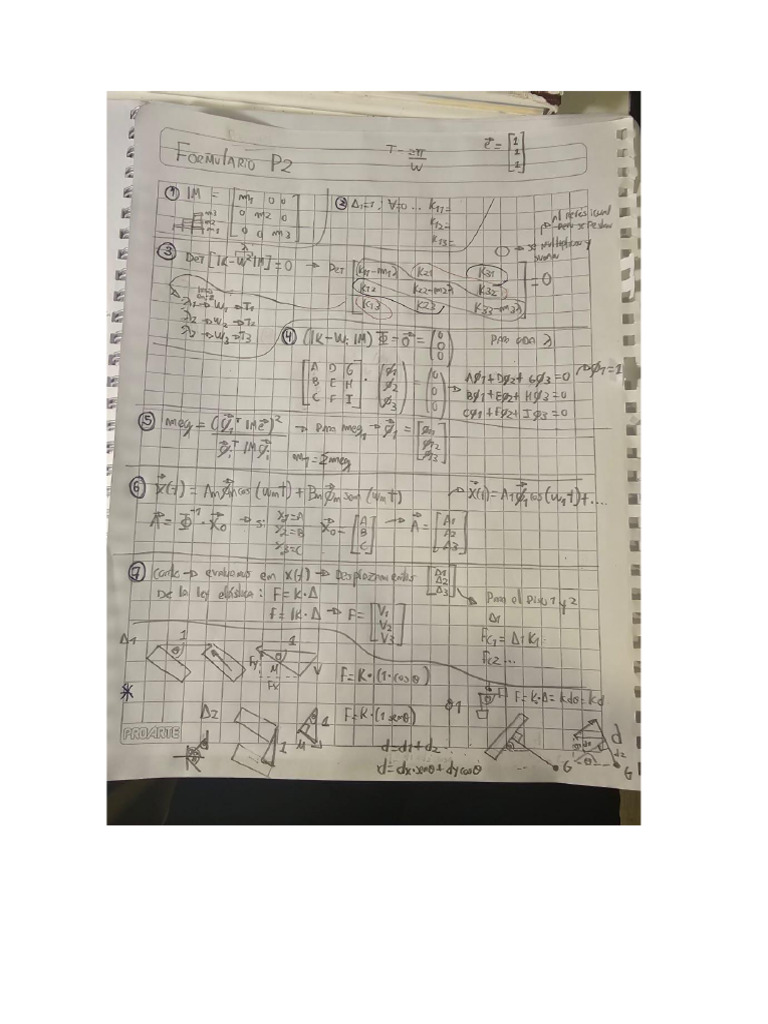 FORMULARIO P2
T = 2π/W
e⃗ = [1 1 1]
① IM = [m1 0 0
0 m2 0
0 0 m3]
② Δ1=1 ; ∀=0 ... K11=
K12=
K13=
③ DET [IK - W² IM] = 0 → DET [K11-m1λ K21 K31
K12 K22-m2λ K32
K13 K23 K33-m3λ] = 0
λ1 → W1 → T1
λ2 → W2 → T2
λ3 → W3 → T3
④ (IK - Wi IM) Φ⃗ = 0⃗ = (0 0 0) para cada λ
[A D G
B E H
C F I] · (φ1 φ2 φ3) = (0 0 0) → Aφ1+Dφ2+Gφ3=0 → φ1=1
Bφ1+Eφ2+Hφ3=0
Cφ1+Fφ2+Iφ3=0
⑤ meq = (φ⃗iᵀ IM e⃗)² / φ⃗iᵀ IM φ⃗i → para meq1 → φ⃗1 = [φ11 φ12 φ13]
mT = Σmeq
⑥ X⃗(t) = Am φ⃗m cos(wm t) + Bm φ⃗m sen(wm t) → X⃗(t) = A1 φ⃗1 cos(w1 t) + ....
A⃗ = Φ⃗⁻¹ · X⃗0 → si X1=A
X2=B
X3=C
X⃗0 = [A B C] → A⃗ = [A1 A2 A3]
⑦ → evaluamos en X(t) → Desplazamientos [Δ1 Δ2 Δ3]
De la ley elástica: F = K·Δ
F = IK·Δ → F = [V1 V2 V3]
Para el piso 1 y 2
Δ1
FC1 = Δ1 K1
FC2 ...
Δ1
1
θ
1
Fy
M
Fx
F = K·(1·cosθ)
*
Δ2
1
1
M
F = K·(1 senθ)
θ1
F = K·Δ = Kdθ = Kd
d = d1+d2
d = dx·senθ + dy cosθ
G
d
d2
G
PROARTE